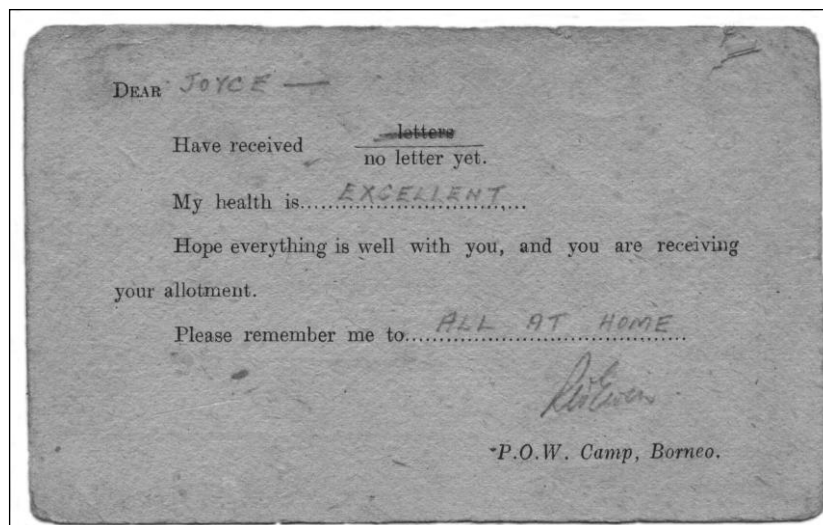 DEAR JOYCE —
letters
Have received
no letter yet.
My health is....EXCELLENT....
Hope everything is well with you, and you are receiving
your allotment.
Please remember me to....ALL AT HOME....
P.O.W. Camp, Borneo.